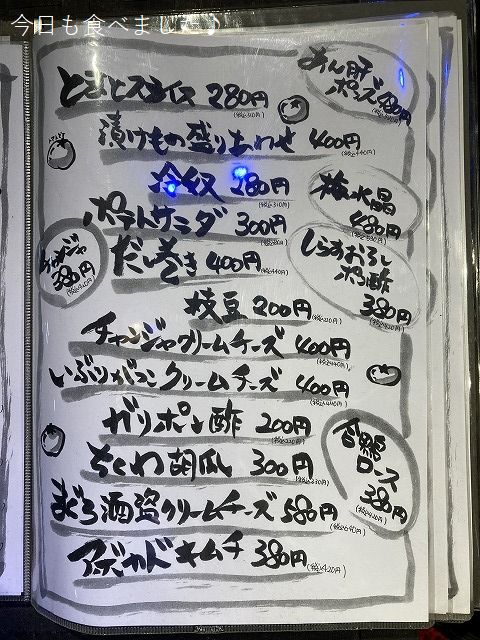 今日も食べました♪
とまとスライス 280円
(税込310円)
あん肝
ポン酢 480円
漬けもの盛りあわせ 400円
(税込440円)
冷奴 280円
(税込310円)
梅水晶
480円
ポテトサラダ 300円
チャンジャ
380円
だし巻き 400円
(税込440円)
しらすおろし
ポン酢
380円
(税込420円)
枝豆 200円
(税込220円)
チャンジャクリームチーズ 400円
(税込440円)
いぶりがっこクリームチーズ 400円
(税込440円)
ガリポン酢 200円
(税込220円)
ちくわ胡瓜 300円
(税込330円)
合鴨
ロース
380円
(税込420円)
まぐろ酒盗クリームチーズ 580円
(税込640円)
アボカドキムチ 380円
(税込420円)